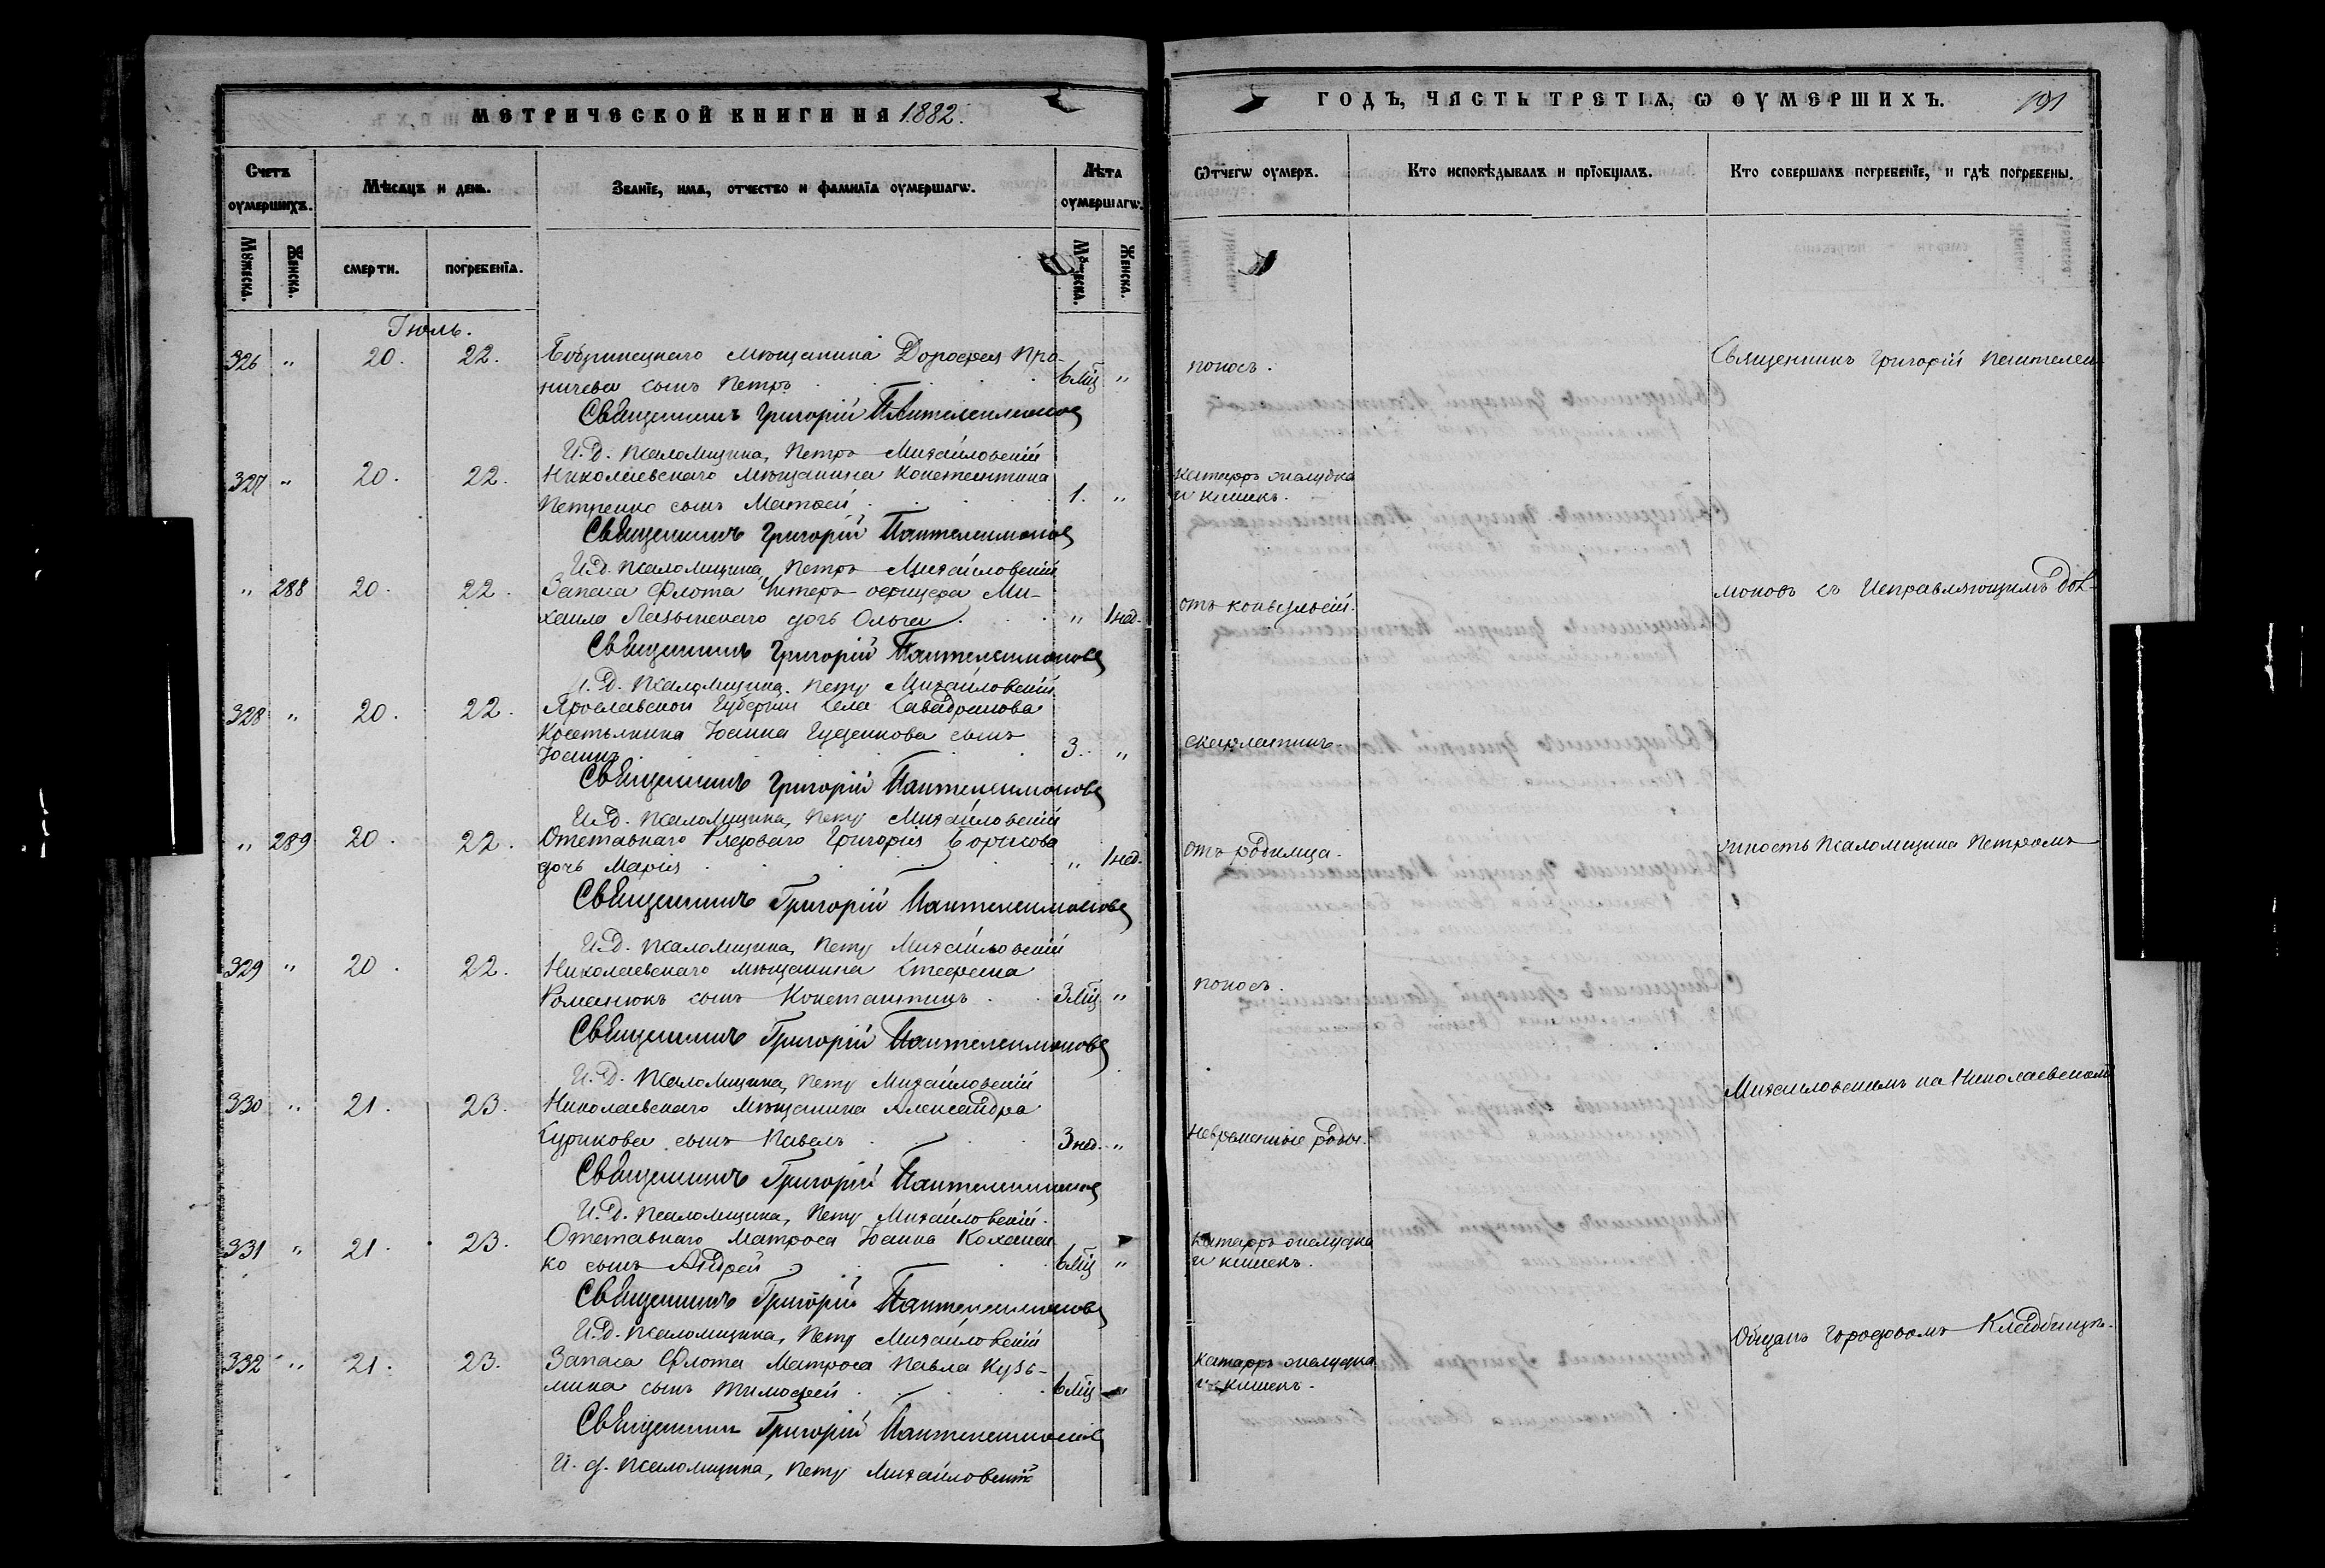 МЕТРИЧЕСКОЙ КНИГИ НА 1882.
Счетъ оумершихъ.
Мѣсяцъ и день.
Званїе, имя, отчество и фамилїя оумершагѡ.
Лѣта оумершагѡ.
Мꙋжеска. Женска.
смерти. погребенїя.
Мꙋжеска. Женска.
Іюль.
326 " 20. 22. Бобринецкаго мѣщанина Дорофея Про-
ничева сынъ Петръ 6 мц "
Священникъ Григорій Пантелеимоновъ
И.д. Псаломщика, Петръ Михайловскій
327 " 20. 22. Николаевскаго мѣщанина Константина
Петренко сынъ Матвей 1. "
Священникъ Григорій Пантелеимоновъ
И.д. Псаломщика Петръ Михайловскій
" 288 20. 22. Запаса Флота Унтеръ-офицера Ми-
хаила дочь Ольга " 1 нед.
Священникъ Григорій Пантелеимоновъ
И.д. Псаломщика. Петръ Михайловскій
328 " 20. 22. Ярославской Губерніи Села
Крестьянина Іоанна сынъ
Іоаннъ 3. "
Священникъ Григорій Пантелеимоновъ
И.д. Псаломщика, Петръ Михайловскій
" 289 20. 22. Отставнаго Рядоваго Григорія Борисова
дочь Марія " 1 нед.
Священникъ Григорій Пантелеимоновъ
И.д. Псаломщика, Петръ Михайловскій
329 " 20. 22. Николаевскаго мѣщанина Стефана
Романюкъ сынъ Константинъ 3 мц "
Священникъ Григорій Пантелеимоновъ
И.д. Псаломщика, Петръ Михайловскій
330 " 21. 23. Николаевскаго Мѣщанина Александра
Сурикова сынъ Павелъ 3 нед. "
Священникъ Григорій Пантелеимоновъ
И.д. Псаломщика, Петръ Михайловскій.
331 " 21. 23. Отставнаго Матроса Іоанна Коханен-
ко сынъ Андрей 6 мц "
Священникъ Григорій Пантелеимоновъ
И.д. Псаломщика, Петръ Михайловскій
332 " 21. 23. Запаса Флота Матроса Павла Кузь-
мина сынъ Тимофей 6 мц "
Священникъ Григорій Пантелеимоновъ
И.д. Псаломщика, Петръ Михайловскій
ГОДЪ, ЧАСТЬ ТРЕТІѦ, Ѡ ОУМЕРШИХЪ. 191
Ѿчегѡ оумеръ.
Кто исповѣдывалъ и прїобщалъ.
Кто совершалъ погребенїе, и гдѣ погребены.
поносъ. Священникъ Григорій Пантелеи-
катарръ желудка
и кишекъ.
отъ конвульсій. моновъ съ Исправляющимъ дол-
скарлатинъ.
отъ родимца. жность Псаломщика Петромъ
поносъ.
Михайловскимъ на Николаевскомъ
невременные роды.
катарръ желудка
и кишекъ.
Общемъ городовомъ Кладбищѣ.
катарръ желудка
и кишекъ.